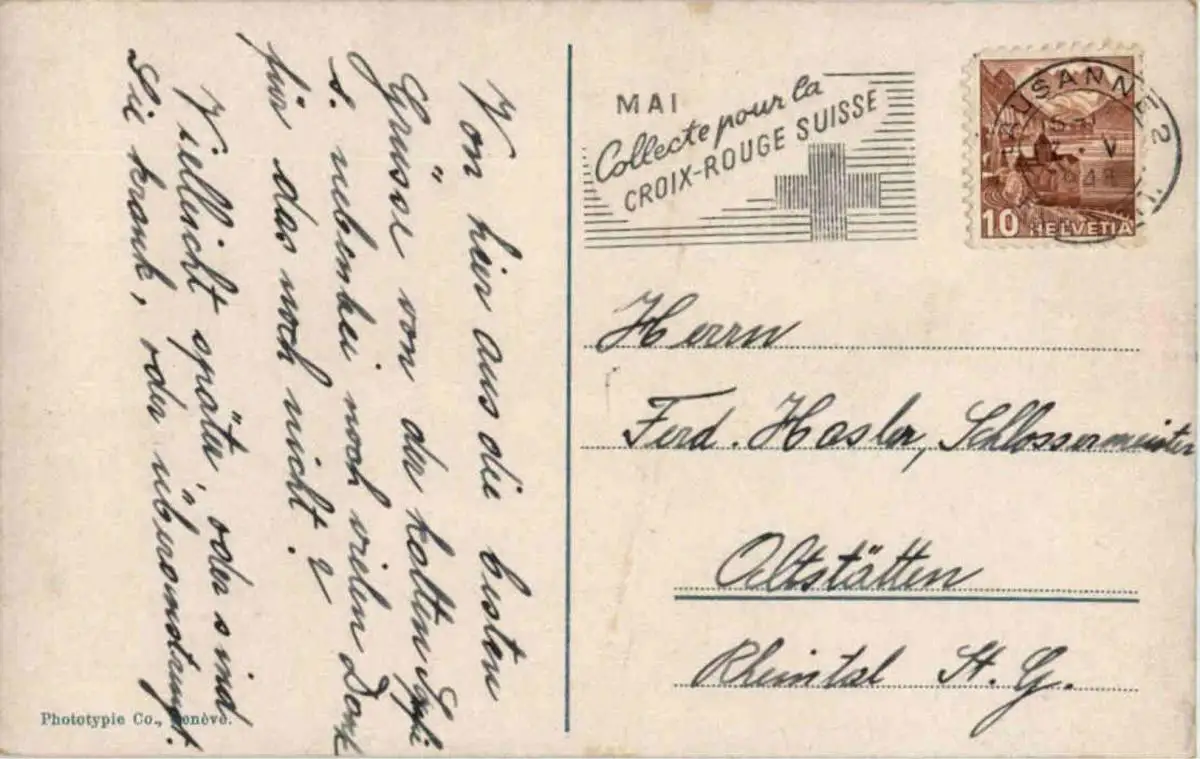 Von hier aus die besten
Grüsse von der kalten
s. nebenbei noch vielen Dank
für das noch nicht?
Viellicht später, oder sind
Sie krank, oder überanstrengt.
Phototypie Co., Genève.
MAI
Collecte pour la
CROIX-ROUGE SUISSE
LAUSANNE 2
V
1948
10 HELVETIA
Herrn
Ferd. Hasler, Schlossermeister
Altstätten
Rheintal St. G.